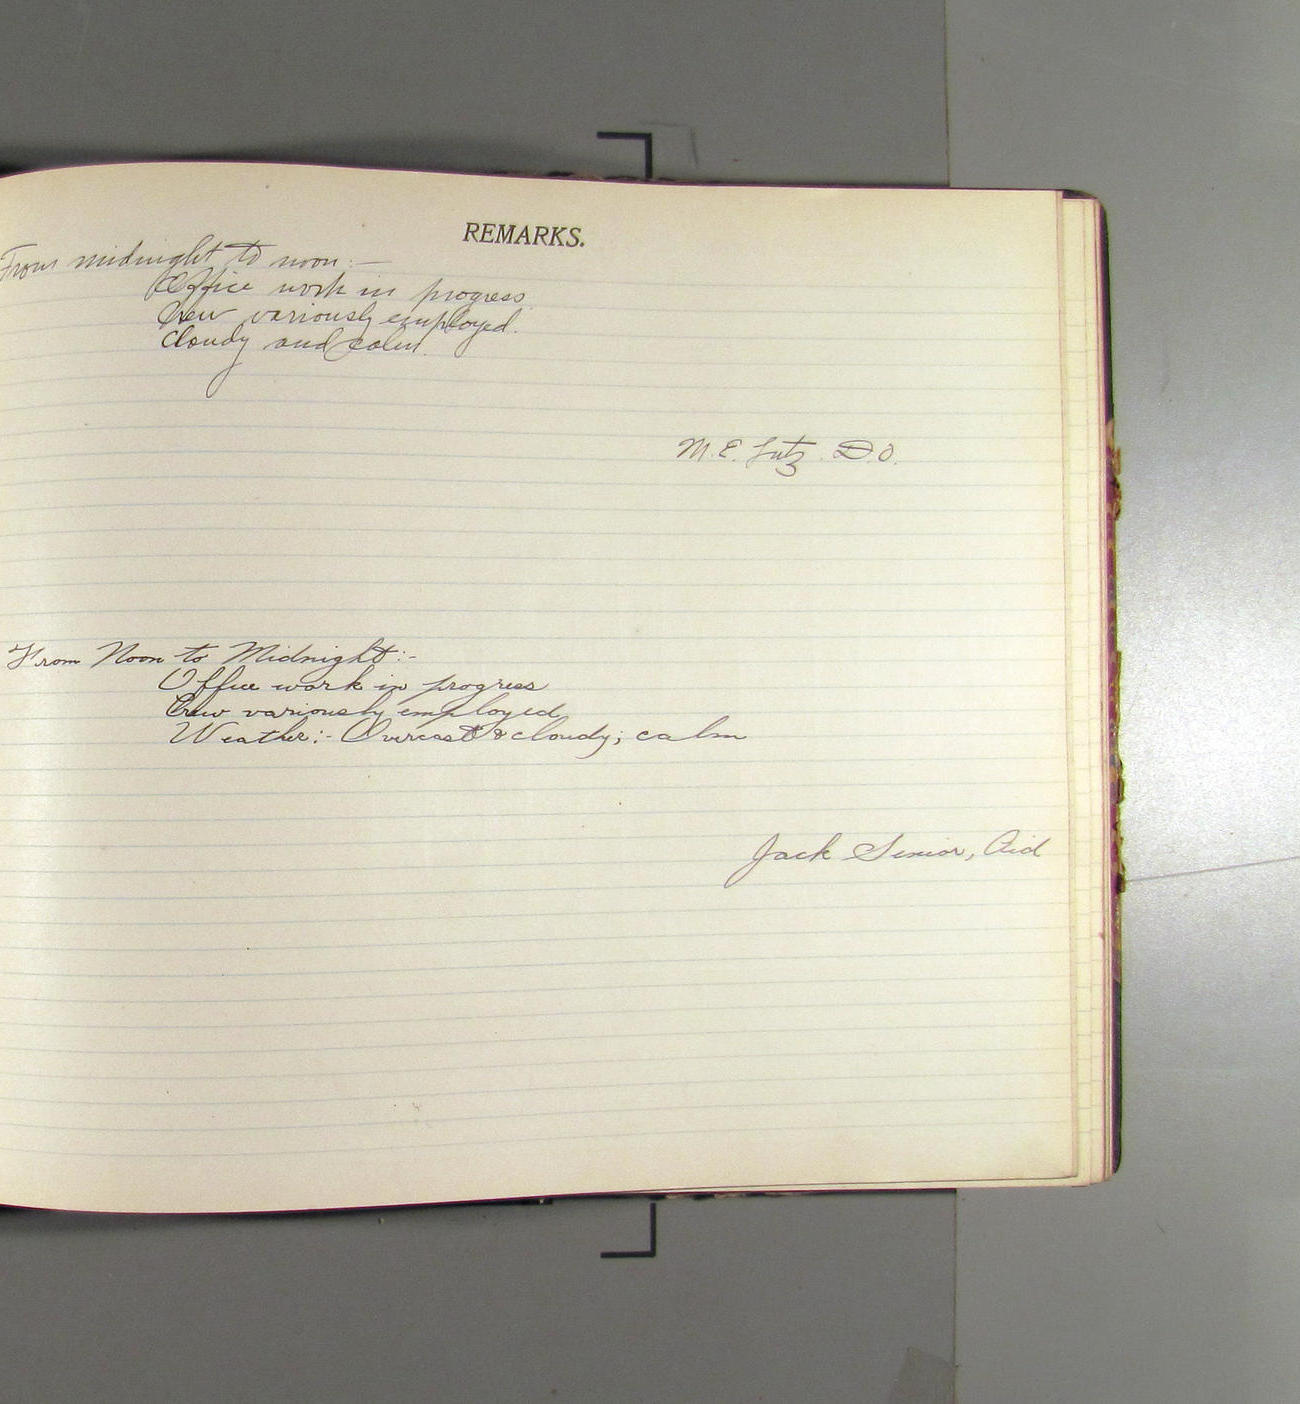 REMARKS.
From midnight to noon:—
Office work in progress
Crew variously employed.
Cloudy and calm.
M. E. Lutz. D.O.
From Noon to Midnight:-
Office work in progress
Crew variously employed
Weather:- Overcast & cloudy; calm
Jack Senior, Aid